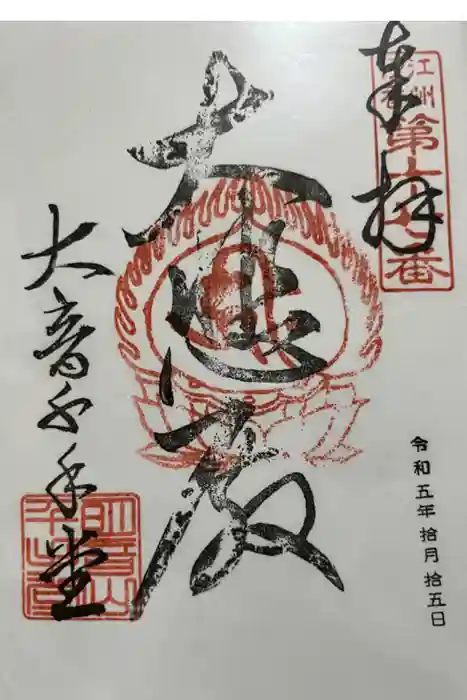 奉拝
江州
第十七番
大悲殿
大音千手堂
令和五年拾月拾五日